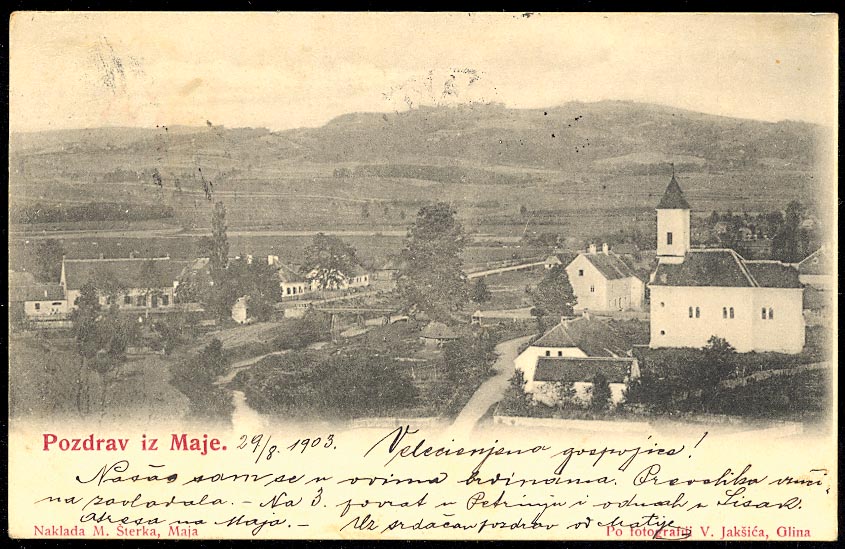 Pozdrav iz Maje. 29/8. 1903. Velecijenjena gospojica!
Našao sam se u ovim brdinama. Prevelika vrući-
na zavladala. - Na 3. povrat u Petrinju i odmah u Sisak.
Adresa na Maja. - Uz srdačan pozdrav od Matije
Naklada M. Šterka, Maja
Po fotografiji V. Jakšića, Glina